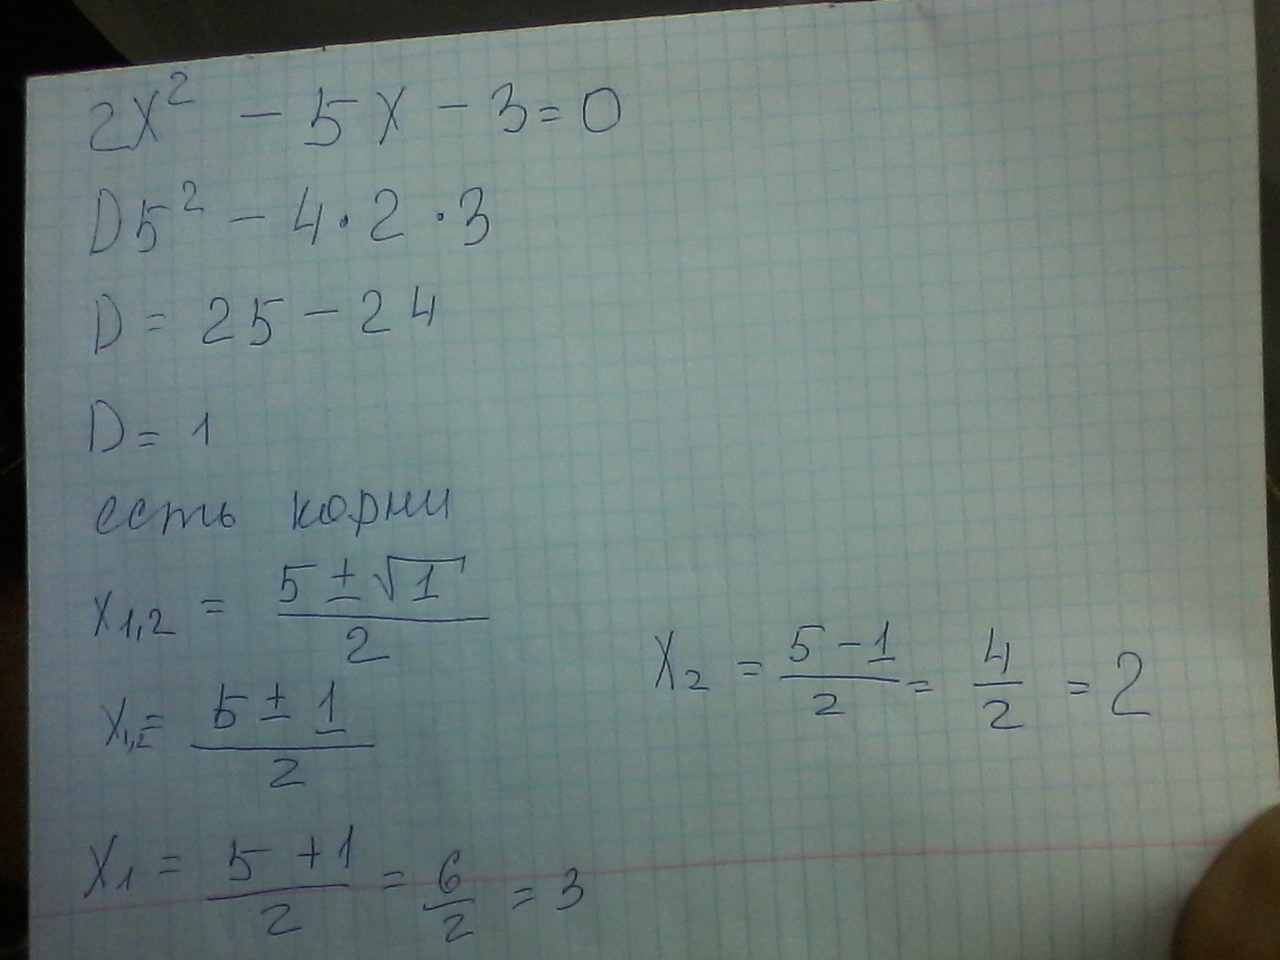 2x² - 5x - 3 = 0
D5² - 4 · 2 · 3
D = 25 - 24
D = 1
есть корни
x₁,₂ = (5 ± √1) / 2
x₁,₂ = (5 ± 1) / 2
x₁ = (5 + 1) / 2 = 6 / 2 = 3
x₂ = (5 - 1) / 2 = 4 / 2 = 2